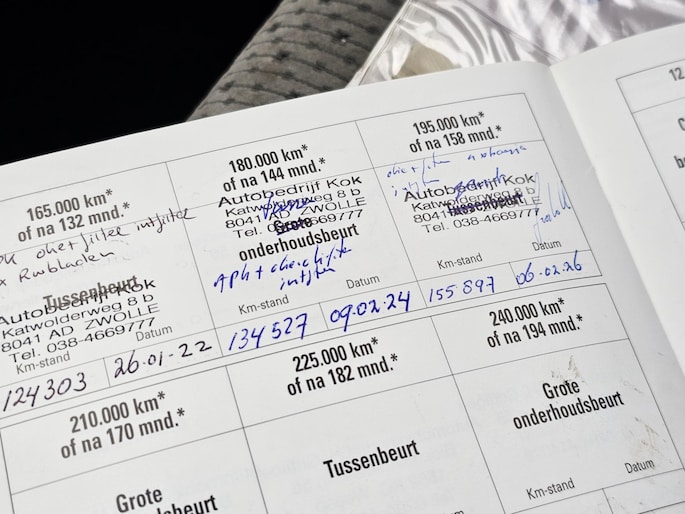 165.000 km*
of na 132 mnd.*
olie+filter intfilter
Rwbladen
Tussenbeurt
Autobedrijf Kok
Katwolderweg 8 b
8041 AD ZWOLLE
Tel. 038-4669777
Km-stand
Datum
124303
26-01-22
180.000 km*
of na 144 mnd.*
Autobedrijf Kok
Katwolderweg 8 b
8041 AD ZWOLLE
Tel. 038-4669777
Grote
onderhoudsbeurt
APK + olie+filter
intfilter
Km-stand
Datum
134527
09.02.24
195.000 km*
of na 158 mnd.*
olie+filter
intfilter
Autobedrijf Kok
Katwolderweg 8 b
8041 AD ZWOLLE
Tel. 038-4669777
Tussenbeurt
Km-stand
Datum
155897
06.02.26
210.000 km*
of na 170 mnd.*
Grote
225.000 km*
of na 182 mnd.*
Tussenbeurt
240.000 km*
of na 194 mnd.*
Grote
onderhoudsbeurt
Km-stand
Datum
12.